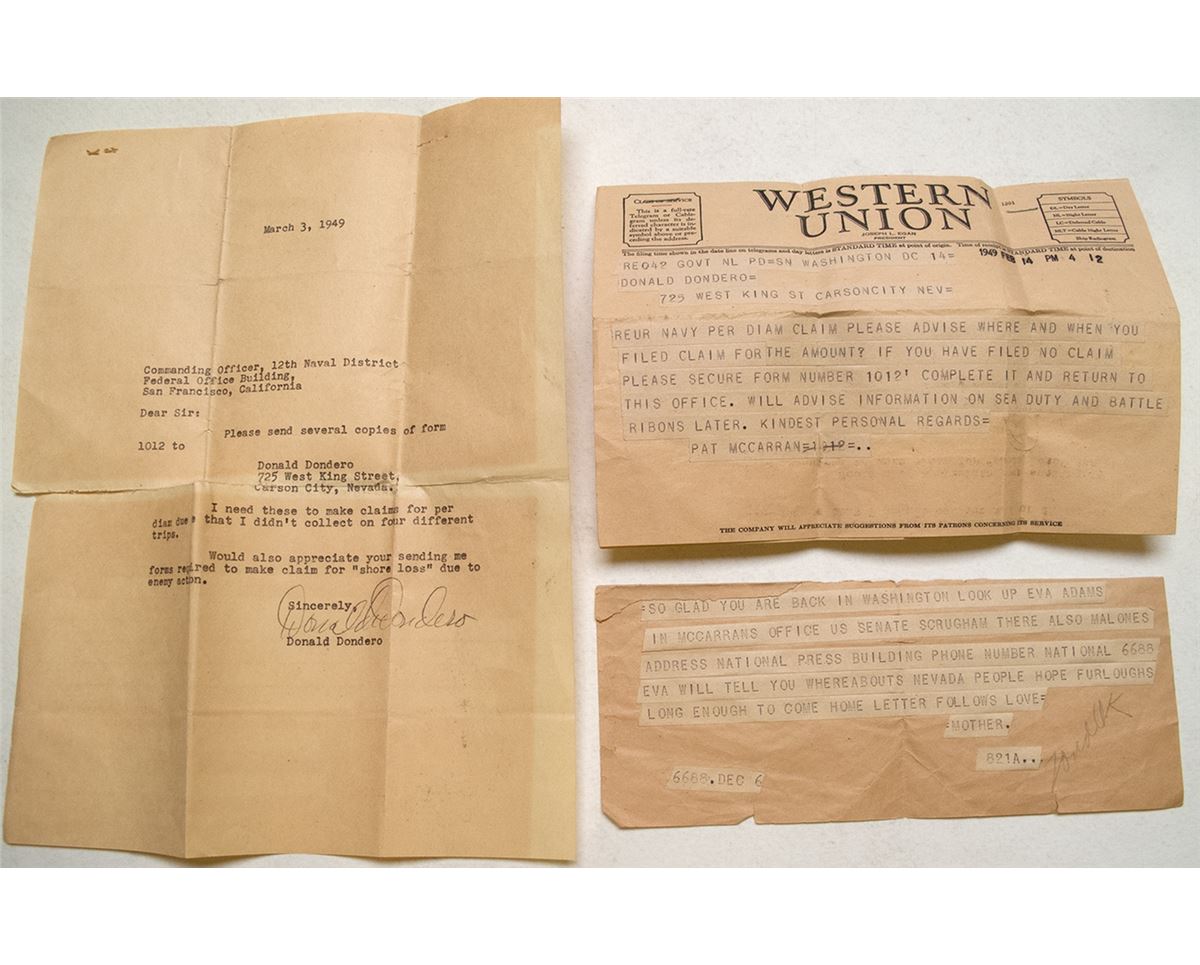 March 3, 1949
Commanding Officer, 12th Naval District
Federal Office Building,
San Francisco, California
Dear Sir:
Please send several copies of form
1012 to
Donald Dondero
725 West King Street,
Carson City, Nevada.
I need these to make claims for per
diam due that I didn't collect on four different
trips.
Would also appreciate your sending me
forms required to make claim for "shore loss" due to
enemy action.
Sincerely,
Donald Dondero
Donald Dondero
CLASS OF SERVICE
This is a full-rate
Telegram or Cable-
gram unless its de-
ferred character is in-
dicated by a suitable
symbol above or pre-
ceding the address.
WESTERN
UNION
JOSEPH L. EGAN
PRESIDENT
1201
SYMBOLS
DL=Day Letter
NL=Night Letter
LC=Deferred Cable
NLT=Cable Night Letter
Ship Radiogram
The filing time shown in the date line on telegrams and day letters is STANDARD TIME at point of origin. Time of receipt is STANDARD TIME at point of destination
REO42 GOVT NL PD=SN WASHINGTON DC 14=
1949 FEB 14 PM 4 12
DONALD DONDERO=
725 WEST KING ST CARSONCITY NEV=
REUR NAVY PER DIAM CLAIM PLEASE ADVISE WHERE AND WHEN YOU
FILED CLAIM FOR THE AMOUNT? IF YOU HAVE FILED NO CLAIM
PLEASE SECURE FORM NUMBER 1012' COMPLETE IT AND RETURN TO
THIS OFFICE. WILL ADVISE INFORMATION ON SEA DUTY AND BATTLE
RIBONS LATER. KINDEST PERSONAL REGARDS=
PAT MCCARRAN=1012=..
THE COMPANY WILL APPRECIATE SUGGESTIONS FROM ITS PATRONS CONCERNING ITS SERVICE
=SO GLAD YOU ARE BACK IN WASHINGTON LOOK UP EVA ADAMS
IN MCCARRANS OFFICE US SENATE SCRUGHAM THERE ALSO MALONES
ADDRESS NATIONAL PRESS BUILDING PHONE NUMBER NATIONAL 6688
EVA WILL TELL YOU WHEREABOUTS NEVADA PEOPLE HOPE FURLOUGHS
LONG ENOUGH TO COME HOME LETTER FOLLOWS LOVE=
=MOTHER.
821A..
6688.DEC 6